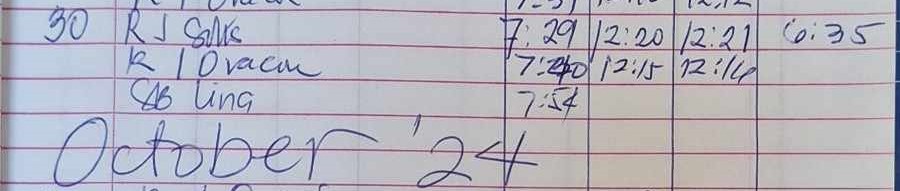 30 R J Silk 7:29 12:20 12:21 6:35
K 1 Dracau 7:40 12:15 12:16
Ling 7:54
October '24